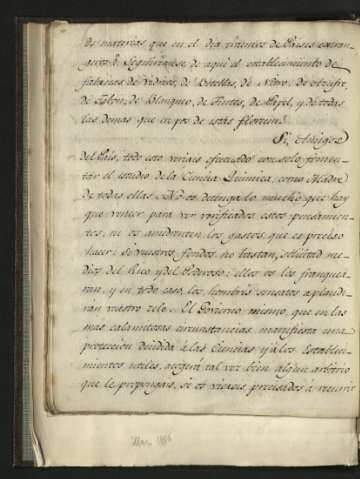 de materias que en el dia vienen de Paises extran-
geros. Seguiriase de aqui el establecimiento de
fabricas de Vidrios, de Botellas, de Nitro, de Azufre,
de Jabon, de Blanqueo, de Tintes, de Papel, y de todas
las demas que en pos de estas florecen.
Si, Amigos
del Pais, todo esto veriais efectuado con solo fomen-
tar el estudio de la Ciencia Quimica, como Madre
de todas ellas. No os detenga lo mucho que hay
que vencer para ver verificados estos pensamien-
tos, ni os amedrenten los gastos que es preciso
hacer. Si vuestros fondos no bastan, solicitad me-
dios del Rico y del Poderoso: ellos os los franquea-
ran, y en todo caso los hombres sensatos aplaudi-
rán vuestro zelo. El Govierno mismo, que en las
mas calamitosas circunstancias manifiesta una
proteccion decidida á las Ciencias y á los Estableci-
mientos utiles, acojerá tal vez bien algun arbitrio
que le propongais, si os vieseis precisados á recurrir